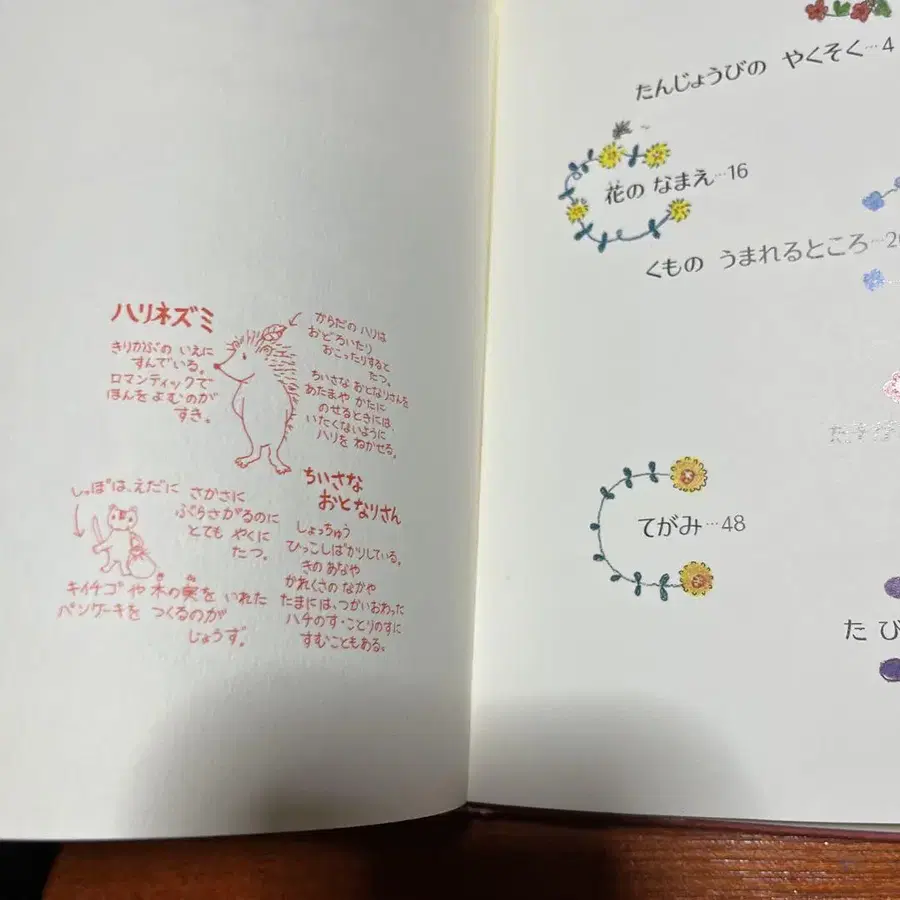 ハリネズミ
きりかぶの いえに
すんでいる。
ロマンティックで
ほんを よむのが
すき。
からだの ハリは
おどろいたり
おこったりすると
たつ。
ちいさな おとなりさんを
あたまや かたに
のせるときには、
いたくないように
ハリを ねかせる。
しっぽは、えだに さかさに
ぶらさがるのに
とても やくに
たつ。
キイチゴや 木の実を いれた
パンケーキを つくるのが
じょうず。
ちいさな
おとなりさん
しょっちゅう
ひっこしばかりしている。
きの あなや
かれくさの なかや
たまには、つかいおわった
ハチのす・ことりのすに
すむこともある。
たんじょうびの やくそく…4
花の なまえ…16
くもの うまれるところ…2
てがみ…48
たび